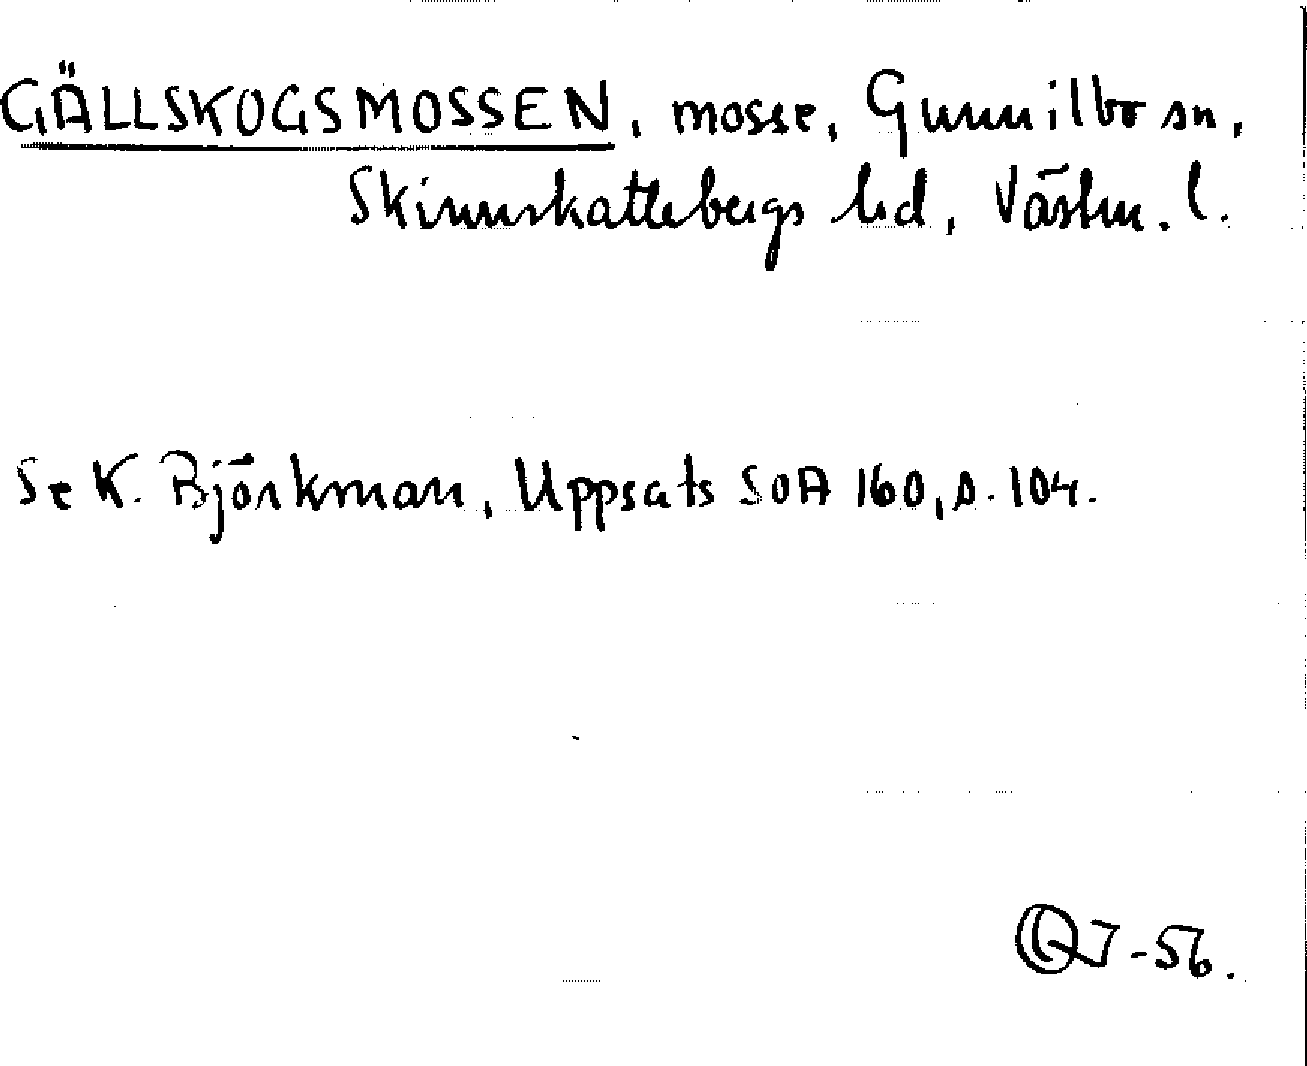 GÄLLSKOGSMOSSEN, mosse, Gunnilbo sn,
Skinnskattebergs hd, Västm. l.
Se K. Björkman, Uppsats SOA 160, s. 104.
-56.